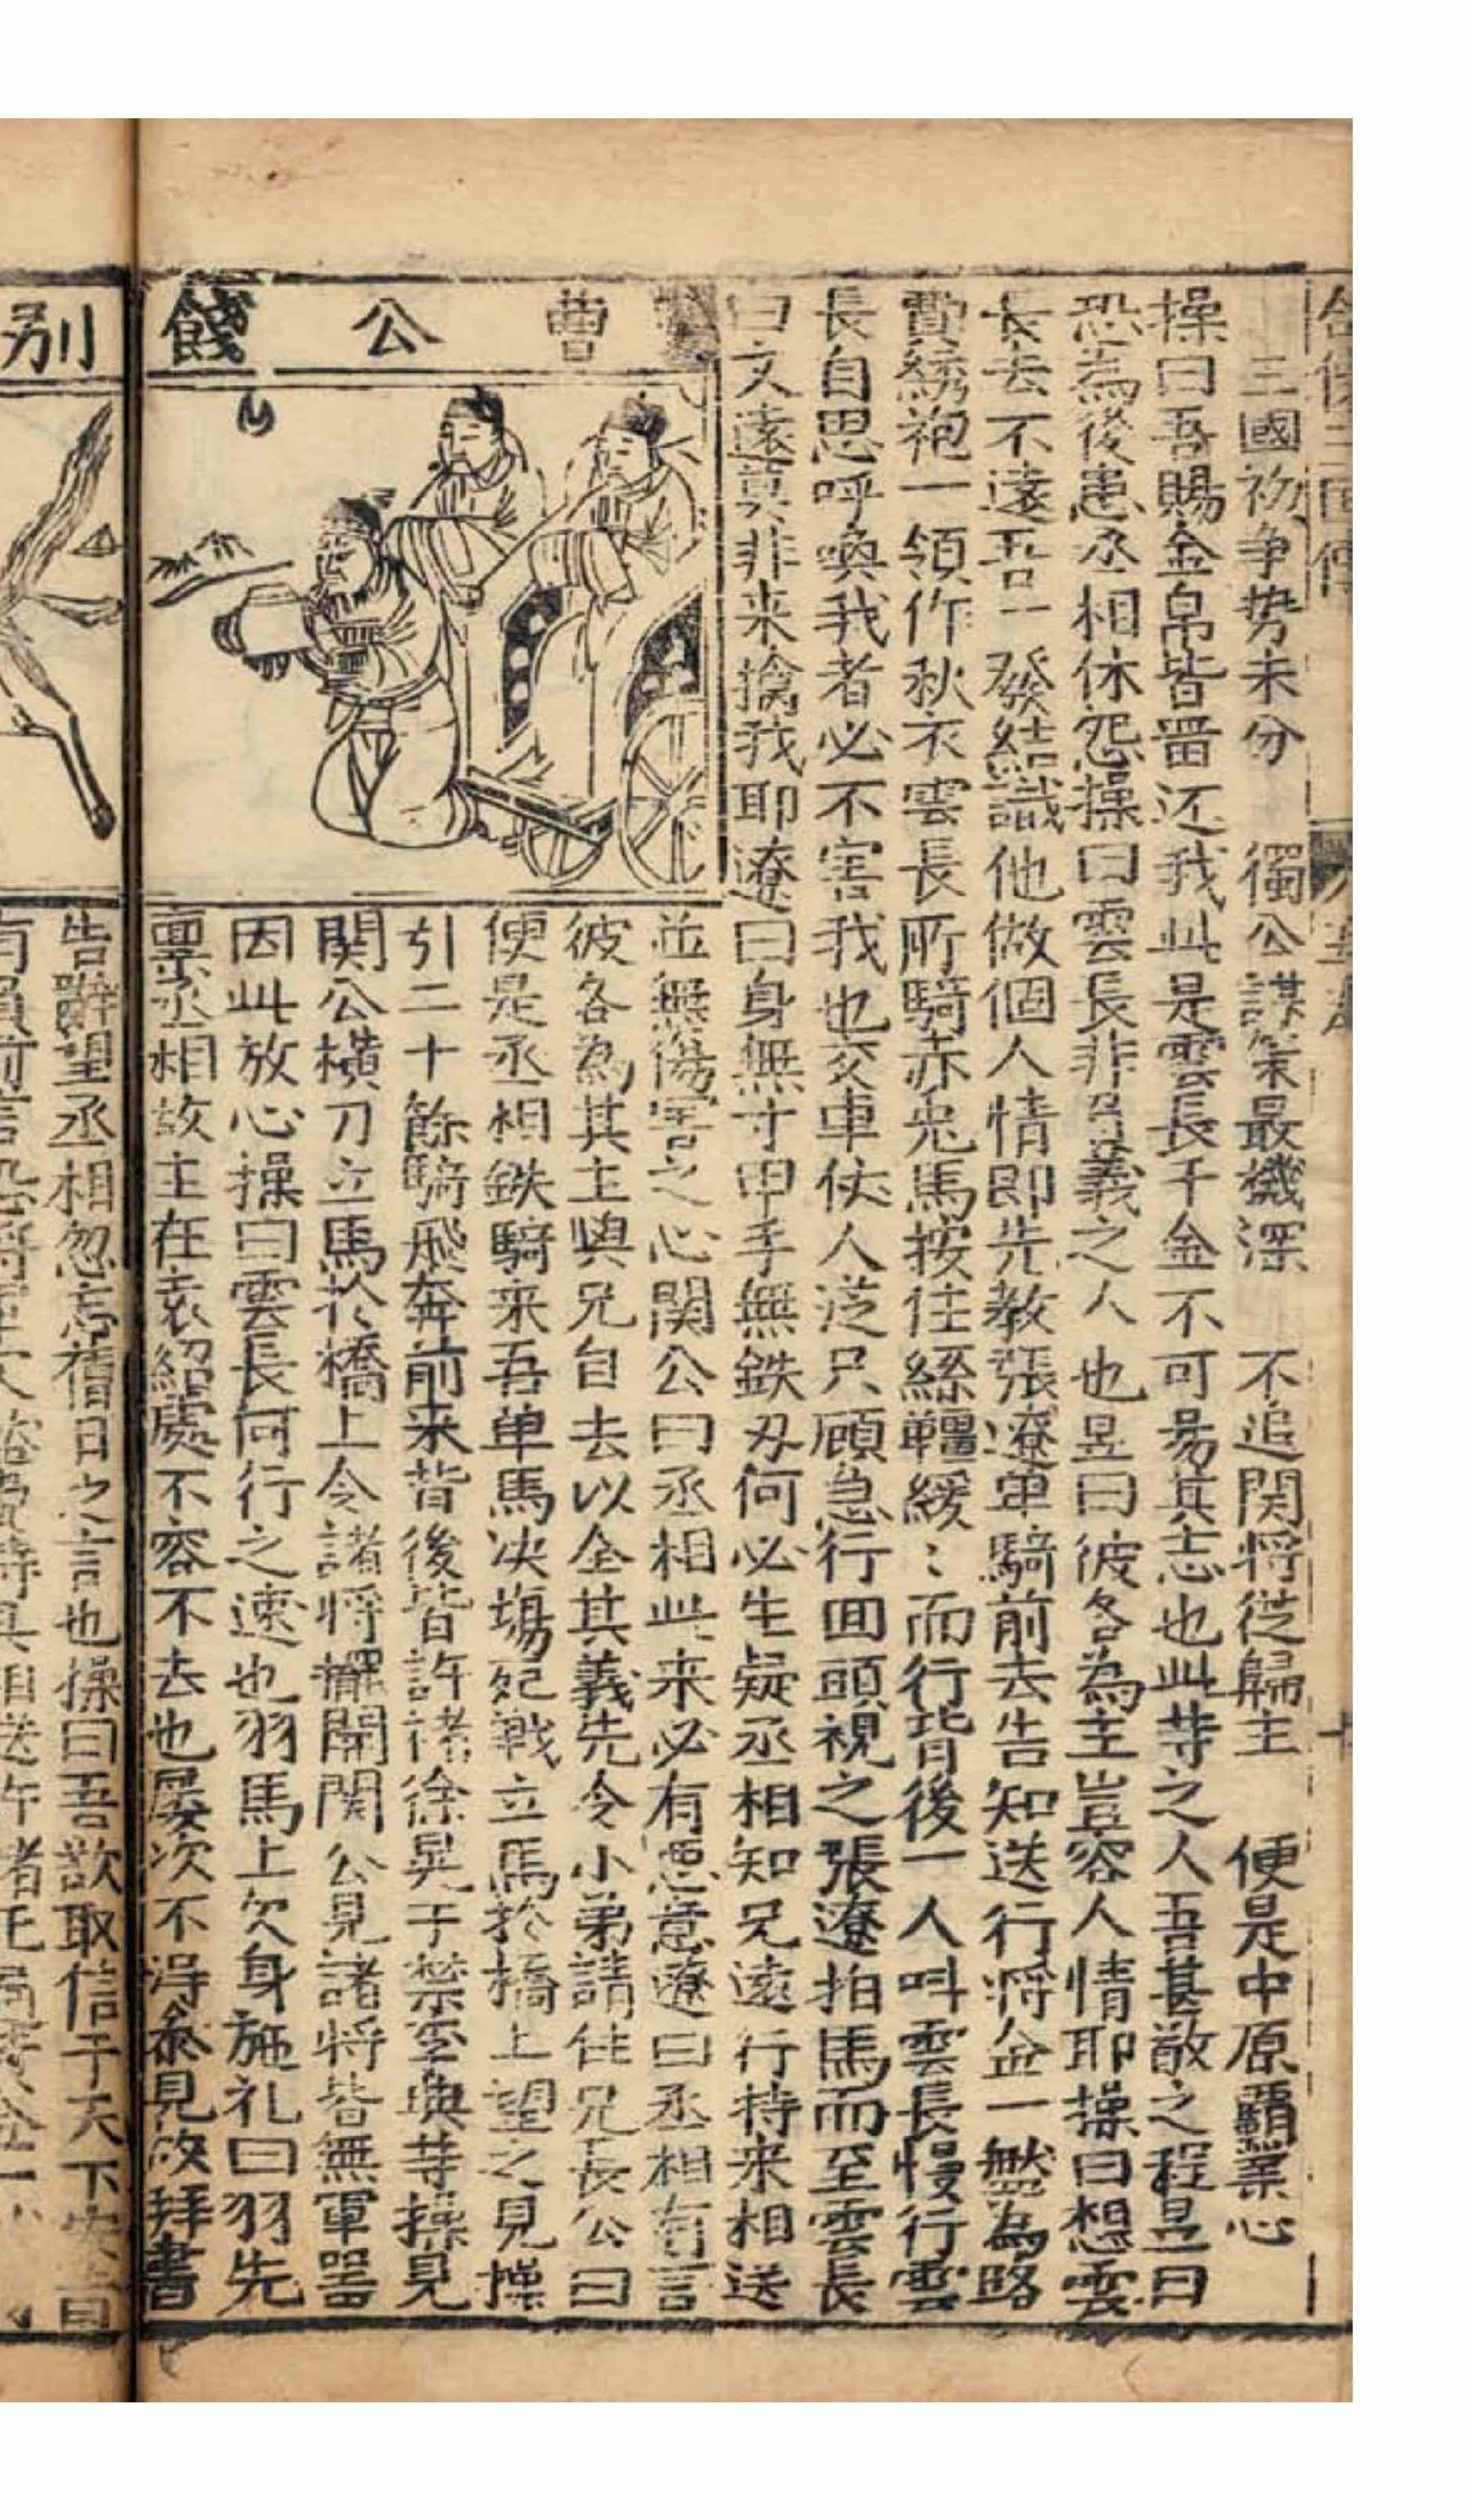 三國初争势未分　獨公謀策最機深　不追関将従歸主　便是中原覇業心
操曰吾賜金帛皆畱还我此是雲長千金不可昜其志也此䓁之人吾甚敬之程昱曰
恐為後患丞相休怨操曰雲長非背義之人也昱曰彼各為主豈容人情耶操曰想雲
長去不遠吾一發結識他做個人情即先教張遼单騎前去告知送行将金一盤為路
費綉袍一領作秋衣雲長所騎赤兎馬按住絲韁緩〻而行背後一人呌雲長慢行雲
長自思呼喚我者必不害我也交車仗人泛只顧急行囬頭視之張遼拍馬而至雲長
曰文遠莫非来擒我耶遼曰身無寸甲手無鉄刄何必生疑丞相知兄遠行持来相送
曹公餞别
並無傷害之心関公曰丞相此来必有悪意遼曰丞相有言
彼各為其主與兄自去以全其義先令小弟請住兄長公曰
便是丞相鉄騎来吾单馬决塲死戰立馬於橋上望之見操
引二十餘騎飛奔前来背後皆許禇徐晃于禁李典䓁操見
関公横刀立馬於橋上令諸将擺開関公見諸将皆無軍噐
因此放心操曰雲長何行之速也羽馬上欠身施礼曰羽先
禀丞相故主在袁紹處不容不去也屡次不淂叅見故拜書
告辭望丞相忽忘舊日之言也操曰吾欲取信于天下安